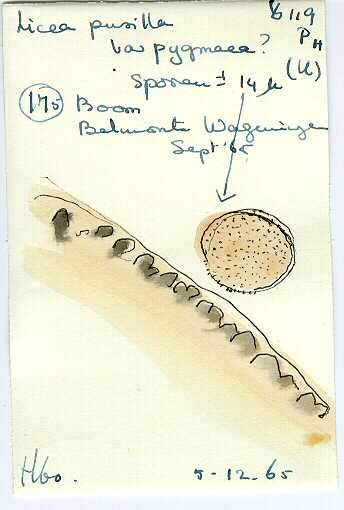 Licea pusilla
var pygmaea?
Sporen ± 14 µ
175 Boom
Belmonte Wageningen
Sept '65
119
PH
(U)
Hbo.
5-12-65